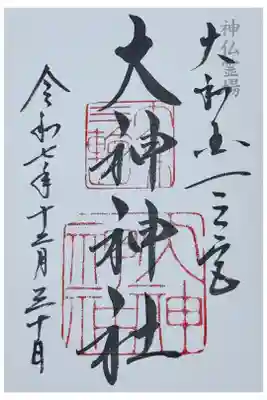 神仏霊場
大和国一之宮
大神神社
三輪
明神
大神
神社
令和七年十二月三十日